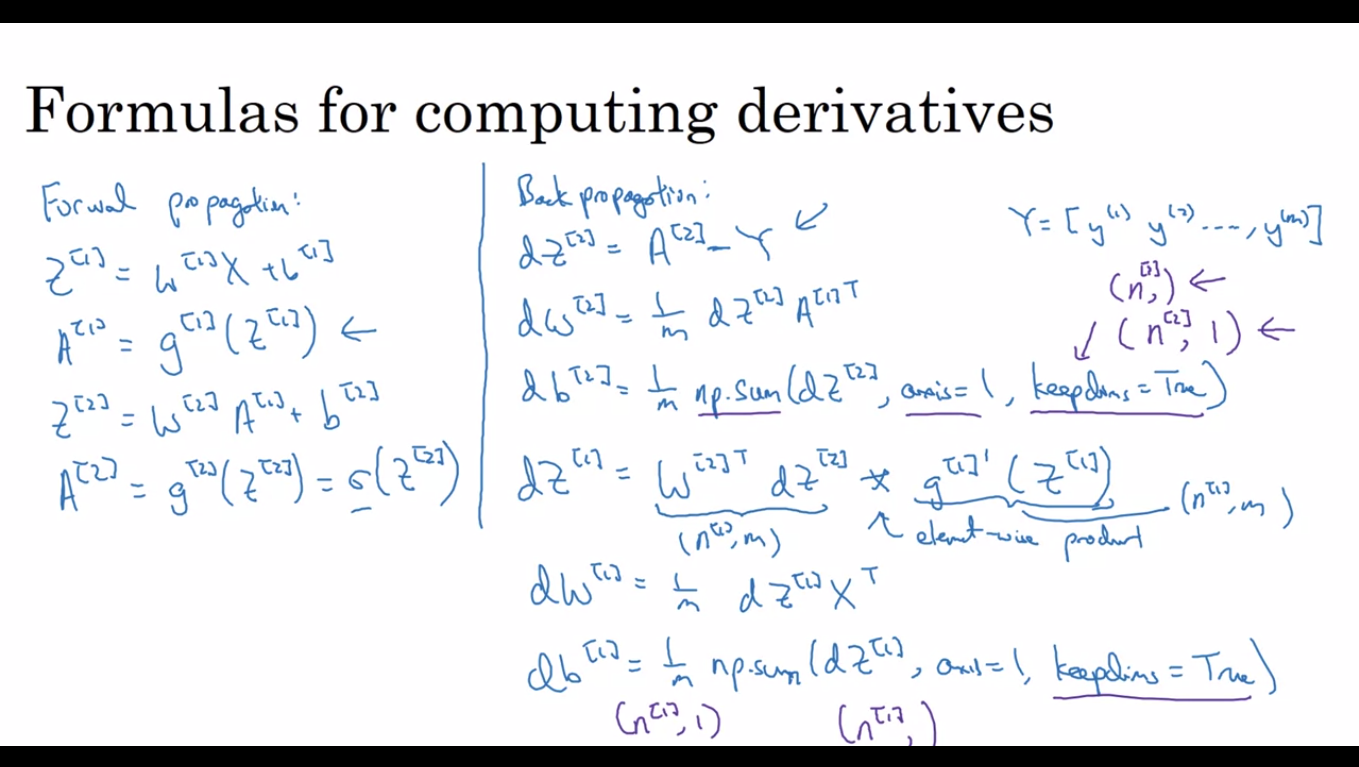 Formulas for computing derivatives
Forward propagation:
Z^[1] = W^[1] X + b^[1]
A^[1] = g^[1](Z^[1]) ←
Z^[2] = W^[2] A^[1] + b^[2]
A^[2] = g^[2](Z^[2]) = σ(Z^[2])
Back propagation:
dZ^[2] = A^[2] - Y ↙
dW^[2] = 1/m dZ^[2] A^[1]T
db^[2] = 1/m np.sum(dZ^[2], axis=1, keepdims=True)
dZ^[1] = W^[2]T dZ^[2] * g^[1]'(Z^[1])
(n^[1], m) ↖ element-wise product (n^[1], m)
dW^[1] = 1/m dZ^[1] X^T
db^[1] = 1/m np.sum(dZ^[1], axis=1, keepdims=True)
(n^[1], 1) (n^[1],)
Y = [y^(1) y^(2) ..., y^(m)]
(n^[2],) ←
↙ (n^[2], 1) ←